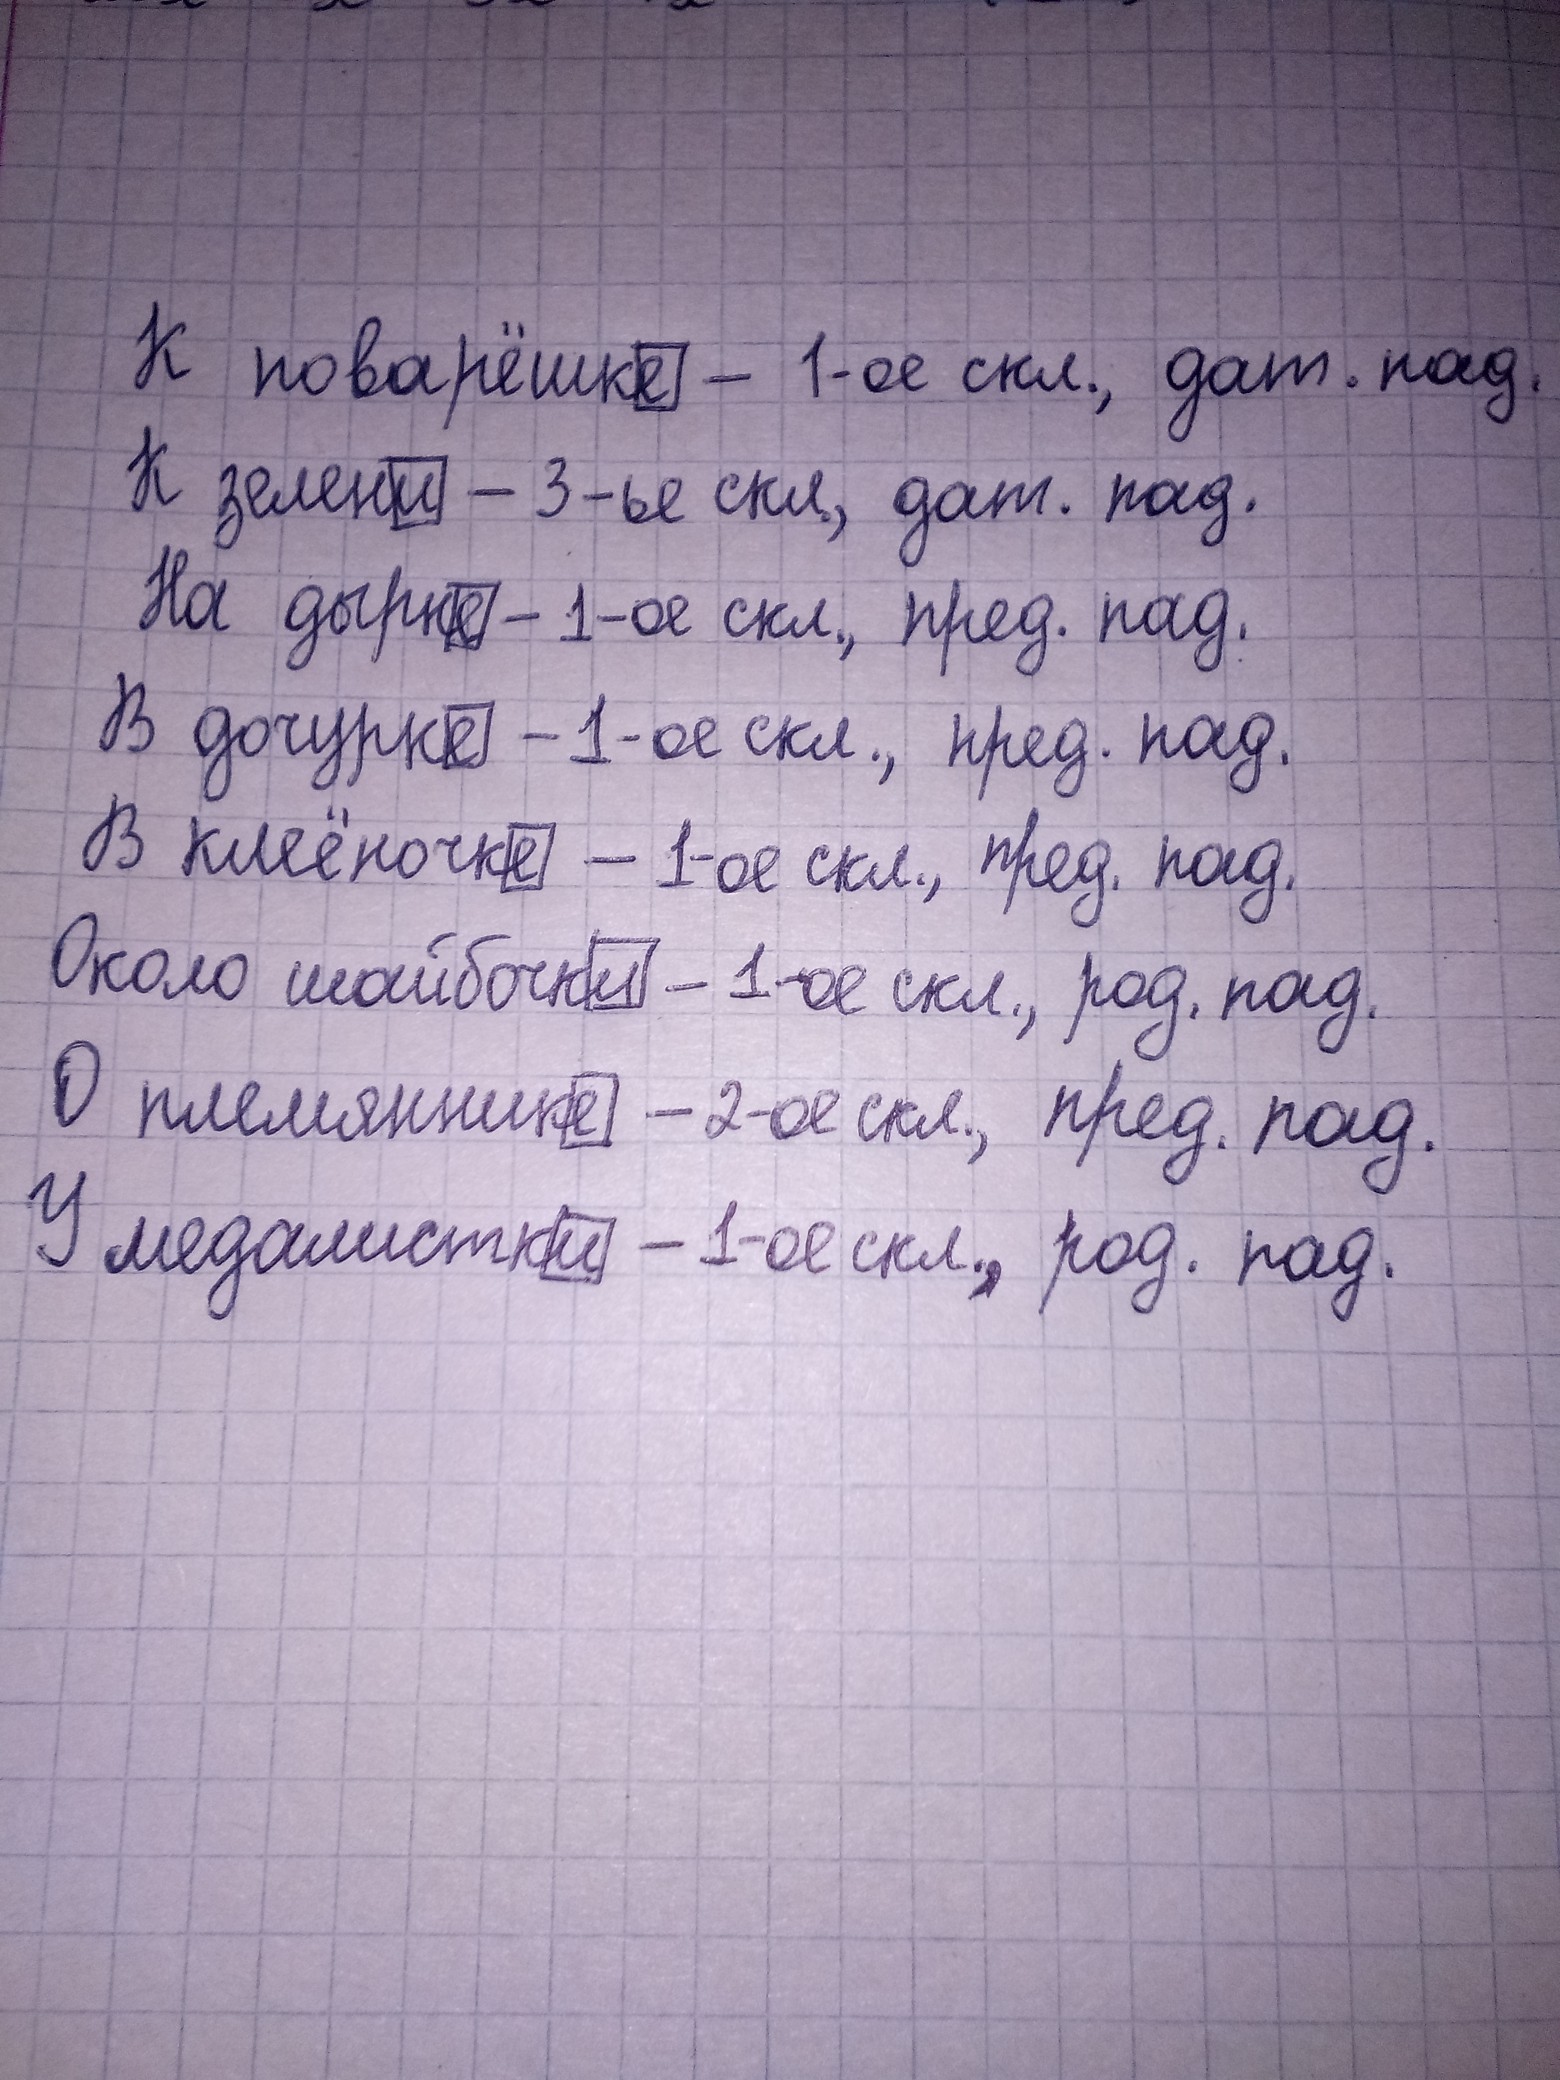 К поварёшке – 1-ое скл., дат. пад.
К зелени – 3-ье скл., дат. пад.
На дырке – 1-ое скл., пред. пад.
В дочурке – 1-ое скл., пред. пад.
В клеёночке – 1-ое скл., пред. пад.
Около шайбочки – 1-ое скл., род. пад.
О племяннике – 2-ое скл., пред. пад.
У медалистки – 1-ое скл., род. пад.